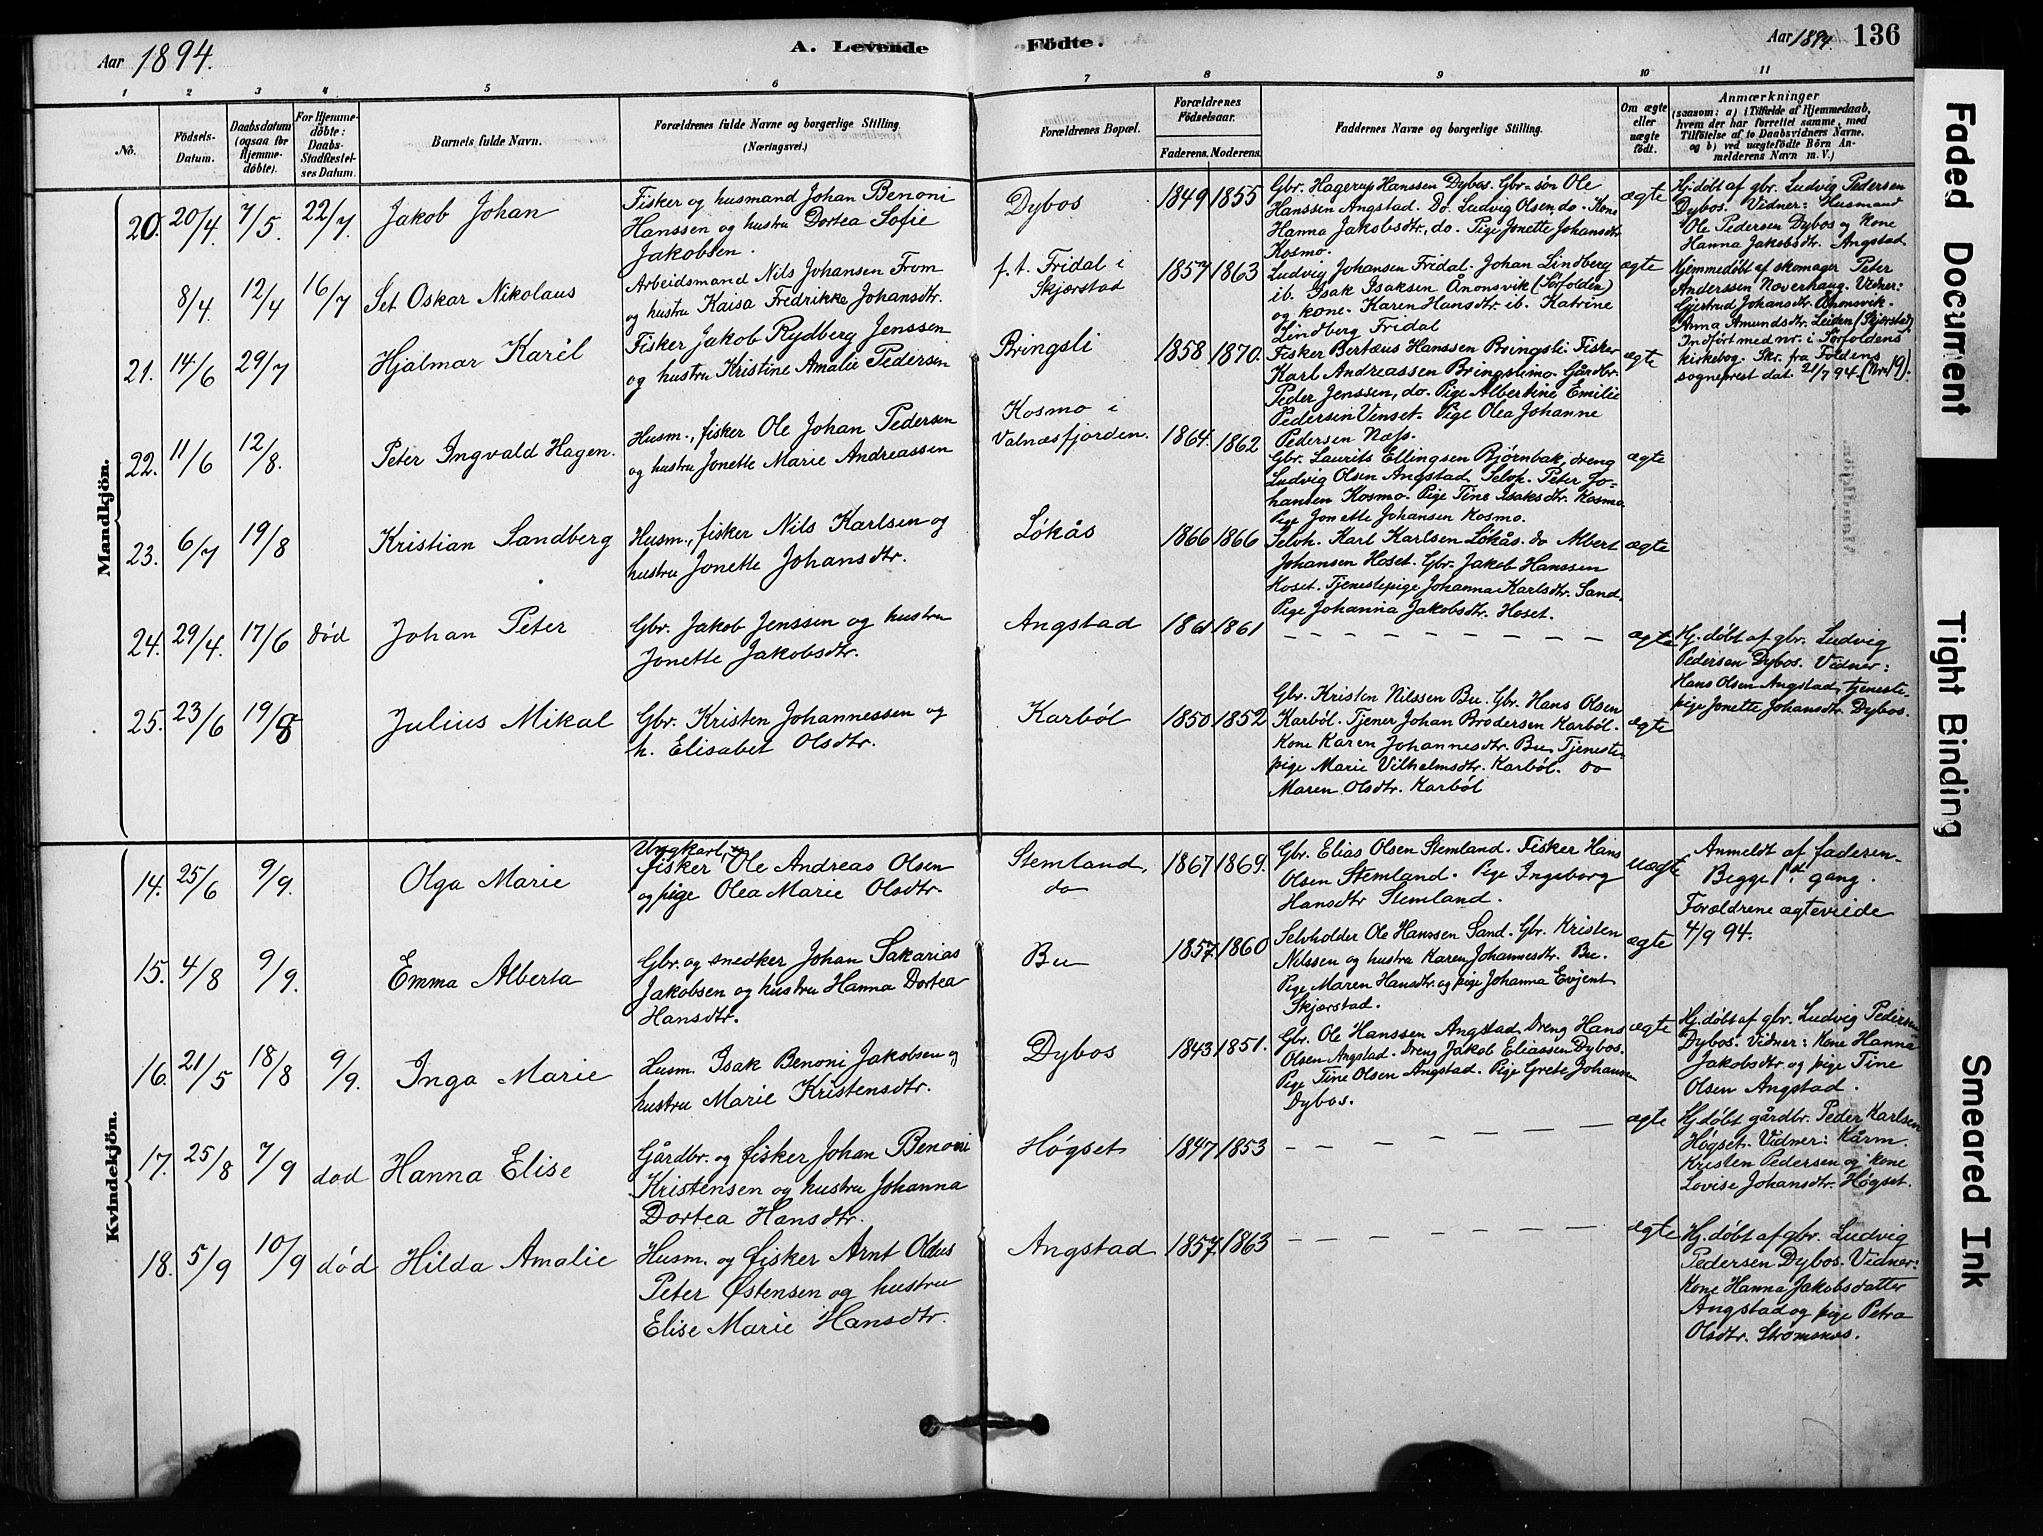 Aar 1894.
A. Levende Födte.
Aar 1894. 136
1 2 3 4 5 6 7 8 9 10 11
No.
Födsels-
Datum.
Daabsdatum
(ogsaa for
Hjemme-
döbte).
For Hjemme-
döbte:
Daabs-
Stadfæstel-
ses Datum.
Barnets fulde Navn.
Forældrenes fulde Navne og borgerlige Stilling.
(Næringsvei.)
Forældrenes Bopæl.
Forældrenes
Födselsaar.
Faderens. Moderens.
Faddernes Navne og borgerlige Stilling.
Om ægte
eller
uægte
födt.
Anmærkninger
(saasom: a) i Tilfælde af Hjemmedaab,
hvem der har forrettet samme, med
Tilföielse af to Daabsvidners Navne.
og b) ved uægtefödte Börn An-
melderens Navn m. V.)
Mandkjön.
20. 20/4. 7/5. 22/7. Jakob Johan
Fisker og husmand Johan Benoni
Hanssen og hustru Dortea Sofie
Jakobsen.
Dybos 1849 1855
Gbr. Hagerup Hanssen Dybos. Gbr.-søn Ole
Hanssen Angstad. Do. Ludvig Olsen, do. Kone
Hanna Jakobsdtr, do. Pige Jonette Johansdtr
Kosmo.
ægte
Hj. døbt af gbr. Ludvig Pedersen
Dybos. Vidner: Husmand
Ole Pedersen Dybos og kone
Hanna Jakobsdtr. Angstad
8/4. 12/4 16/7 Set Oskar Nikolaus
Arbeidsmand Nils Johansen From
og hustru Kaisa Fredrikke Johansdtr.
f. t. Fridal i
Skjærstad
1857 1863
Ludvig Johansen Fridal. Johan Lindberg
ib. Isak Isaksen Ånonsvik (Sørfolden)
og kone. Karen Hansdtr. ib. Katrine
Lindberg Fridal
ægte
Hjemmedøbt af skomager Peter
Anderssen Noverhaug. Vidner:
Gjertrud Johansdtr. Ånonsvik.
Anna Amundsdtr. Leiden (Skjærstad)
Indført med nr. i Sørfoldens
kirkebog. Skr. fra Foldens
sogneprest dat. 21/7 94 (Nr. 19).
21. 14/6 29/7 Hjalmar Karèl
Fisker Jakob Rydberg Jenssen
og hustru Kristine Amalie Pedersen
Bringsli 1858 1870.
Fisker Bertæus Hanssen Bringsli. Fisker
Karl Andreassen Bringslimo. Gårdbr.
Peder Jenssen, do. Pige Albertine Emilie
Pedersen Venset. Pige Olea Johanne
Pedersen Næss.
ægte
22. 11/6 12/8. Peter Ingvald Hagen.
Husm., fisker Ole Johan Pedersen
og hustru Jonette Marie Andreassen
Kosmo i
Valnæsfjorden.
1864. 1862
Gbr. Laurits Ellingsen Bjørnbak, dreng
Ludvig Olsen Angstad, Selvh. Peter Jo-
hansen Kosmo. Pige Tine Isaksdtr. Kosmo
Pige Jonette Johansen Kosmo.
ægte
23. 6/7 19/8 Kristian Sandberg
Husm., fisker Nils Karlsen og
hustru Jonette Johansdtr.
Løkås 1866 1866
Selvh. Karl Karlsen Løkås. do Albert
Johansen Hoset. Gbr. Jakob Hanssen
Hoset. Tjenestepige Johanna Karlsdtr. Sand.
Pige Johanna Jakobsdtr. Hoset.
ægte
24. 29/4. 17/6 død Johan Peter
Gbr. Jakob Jenssen og hustru
Jonette Jakobsdtr.
Angstad 1861 1861 ægte
Hj. døbt af gbr. Ludvig
Pedersen Dybos. Vidner:
Hans Olsen Angstad, tjeneste-
pige Jonette Johansdtr. Dybos.
25. 23/6 19/8 Julius Mikal
Gbr. Kristen Johannessen og
h. Elisabet Olsdtr.
Karbøl 1850 1852
Gbr. Kristen Nilssen Bu. Gbr. Hans Olsen
Karbøl. Tjener Johan Brodersen Karbøl.
Kone Karen Johannesdtr. Bu. Tjeneste-
pige Marie Vilhelmsdtr. Karbøl. do
Maren Olsdtr. Karbøl
ægte
Kvindekjön.
14. 25/6 9/9. Olga Marie
Ungkarl, og
fisker Ole Andreas Olsen
og pige Olea Marie Olsdtr.
Stemland,
do
1867 1869.
Gbr. Elias Olsen Stemland. Fisker Hans
Olsen Stemland. Pige Ingeborg
Hansdtr Stemland.
uægte
Anmeldt af faderen.
Begge 1ste gang.
Forældrene ægteviede
4/9 94.
15. 4/8 9/9. Emma Alberta
Gbr. og snedker Johan Sakarias
Jakobsen og hustru Hanna Dortea
Hansdtr.
Bu 1857. 1860
Selvholder Ole Hanssen Sand. Gbr. Kristen
Nilssen og hustru Karen Johannesdtr. Bu.
Pige Maren Hansdtr. og pige Johanna Evjent
Skjærstad.
ægte
16. 21/5 18/8 9/9. Inga Marie
Husm. Isak Benoni Jakobsen og
hustru Marie Kristensdtr.
Dybos 1843 1851.
Gbr. Ole Hanssen Angstad. Dreng Hans
Olsen Angstad. Dreng Jakob Eliassen Dybos.
Pige Tine Olsen Angstad. Pige Grete Johansen
Dybos.
ægte
Hj. døbt af gbr. Ludvig Pedersen
Dybos. Vidner: Kone Hanna
Jakobsdtr og pige Tine
Olsen Angstad.
17. 25/8 7/9 død Hanna Elise
Gårdbr. og fisker Johan Benoni
Kristensen og hustru Johanna
Dortea Hansdtr.
Høgset 1847 1853 ægte
Hj. døbt gårdbr. Peder Karlsen
Høgset. Vidner: Kårm.
Kristen Pedersen og kone
Lovise Johansdtr. Høgset.
18. 5/9 10/9 død Hilda Amalie
Husm. og fisker Arnt Oldus
Peter Østensen og hustru
Elise Marie Hansdtr.
Angstad 1857. 1863 ægte
Hj. døbt af gbr. Ludvig
Pedersen Dybos. Vidner:
Kone Hanna Jakobsdatter
Angstad og pige Petra
Olsdtr. Strømsnes.
Faded Document
Tight Binding
Smeared Ink